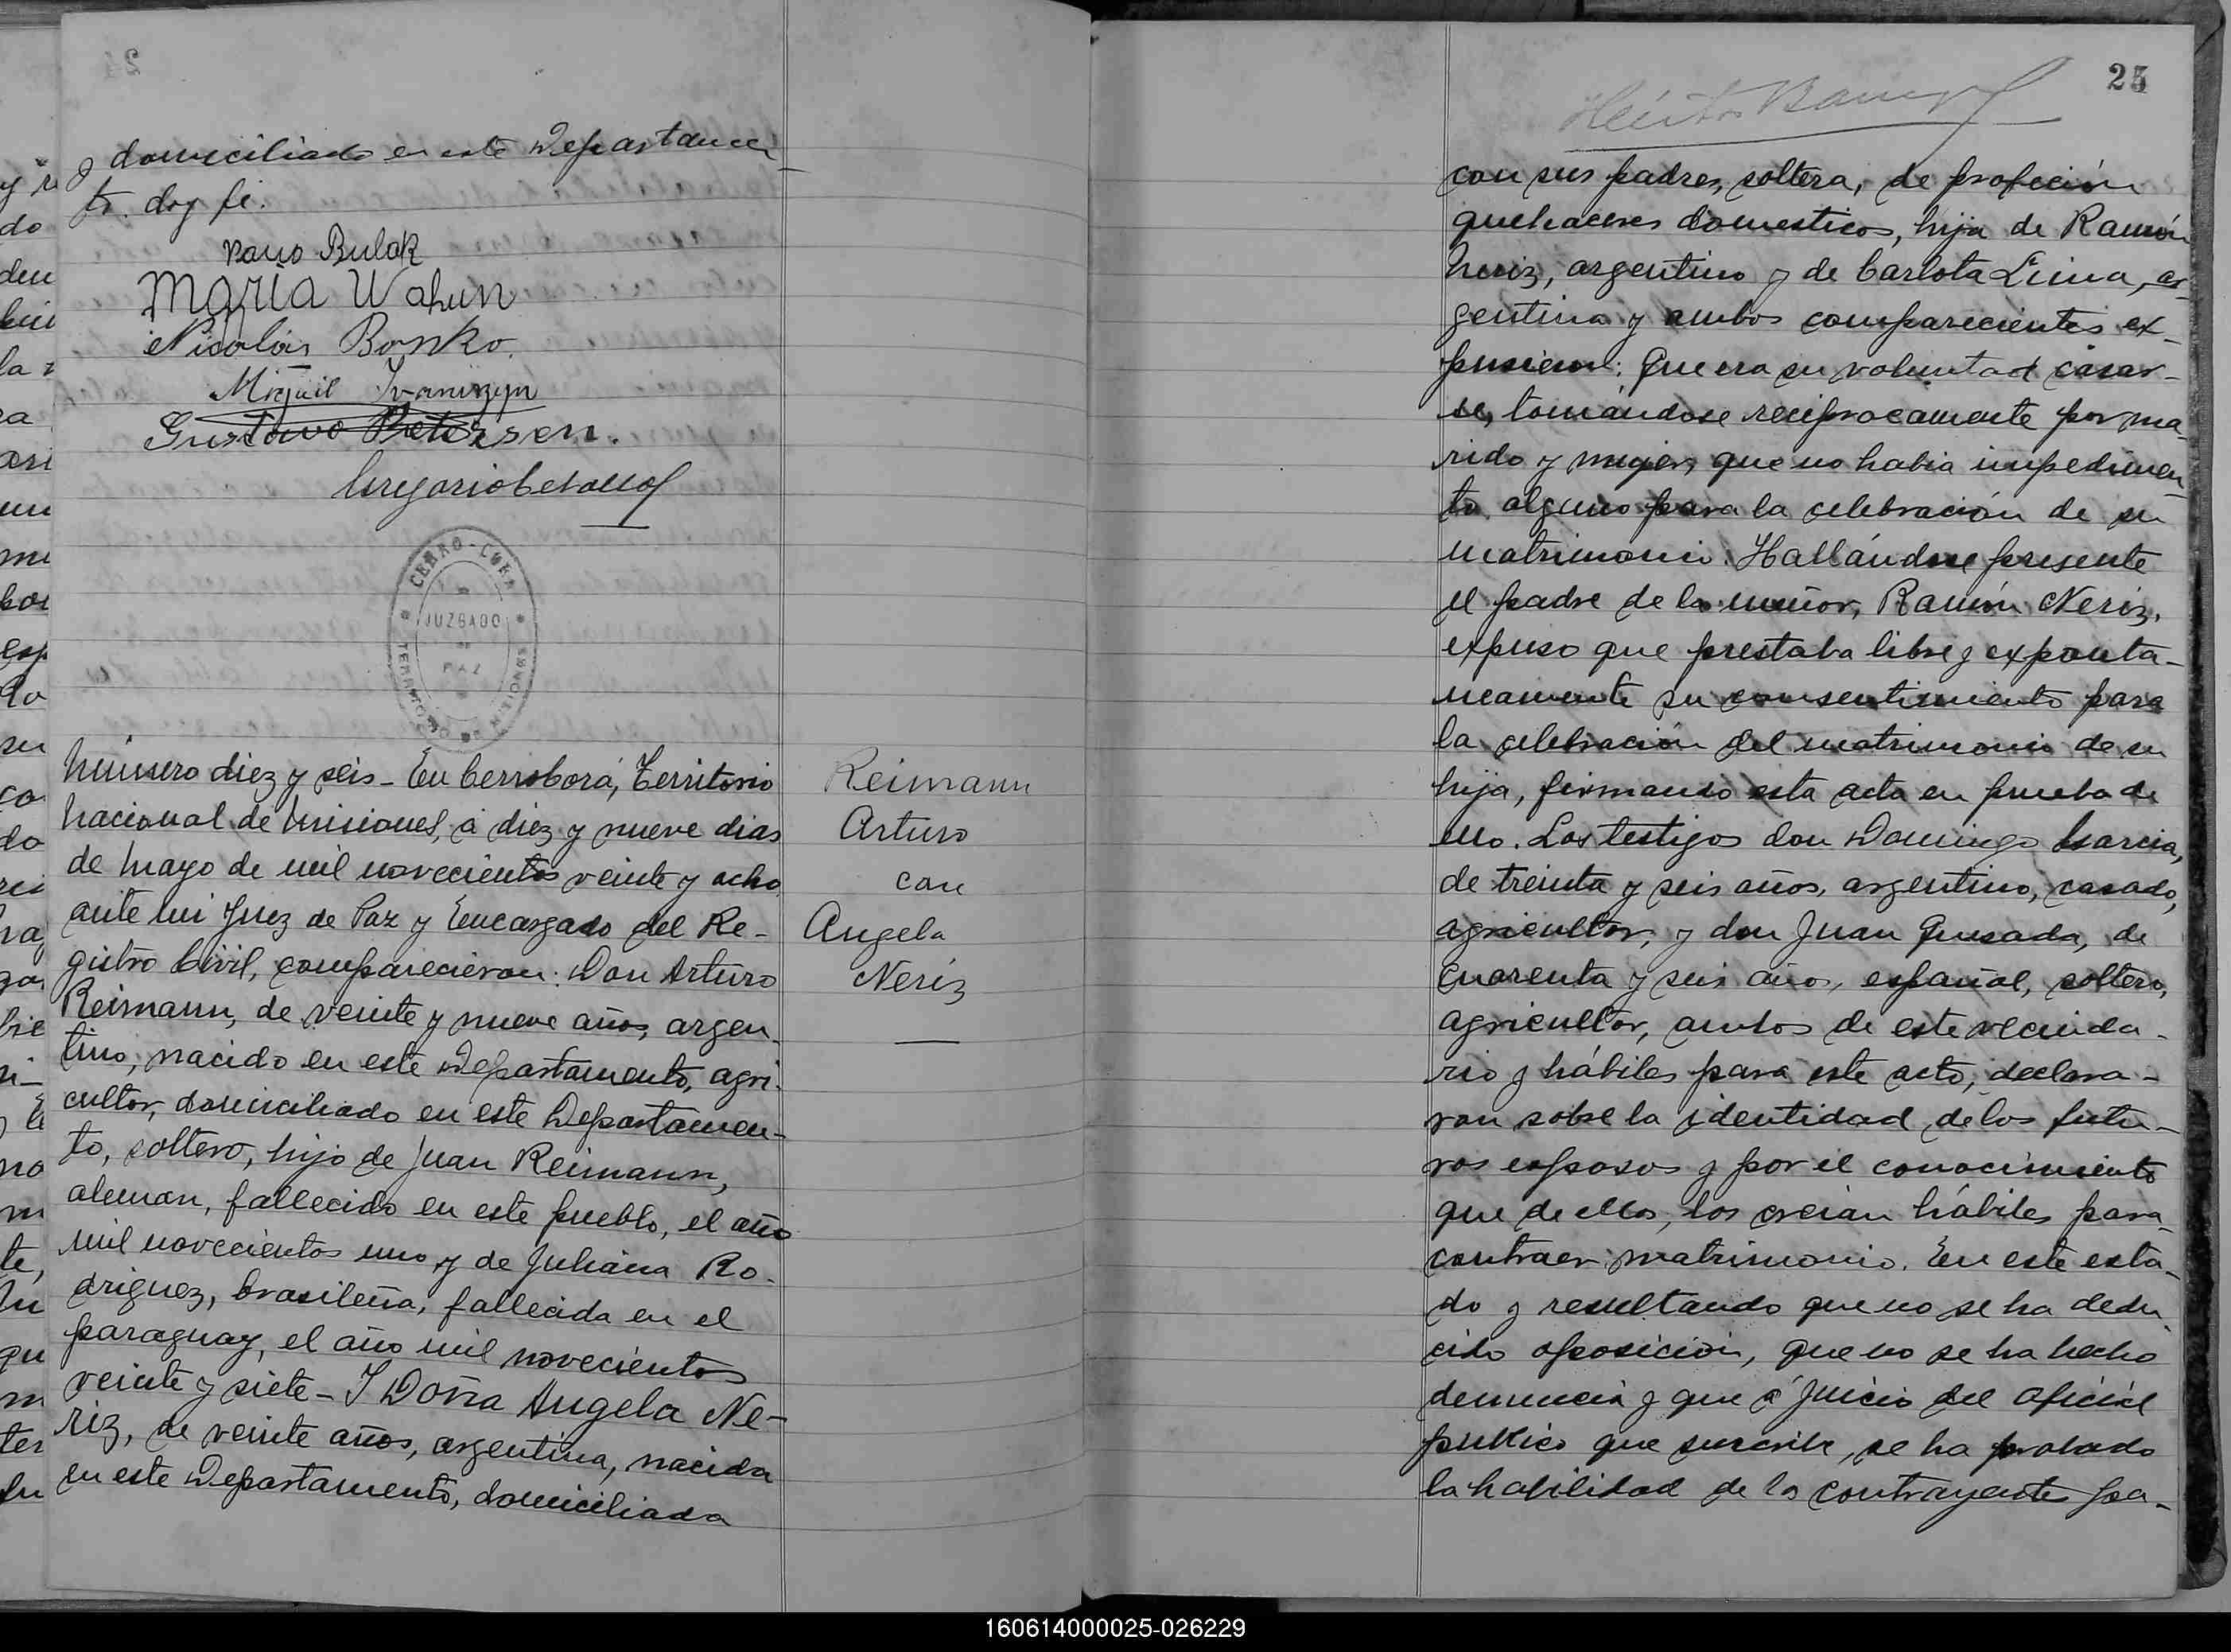 y domiciliado en este Departamen-
to. doy fé.
Bulak
Maria Wahun
Nicolás Bonko.
Miguil Ivaniszyn
Gustavo Petersen.
CERRO-CORA
JUZGADO
DE
PAZ
Número diez y seis - En Cerrocorá, Territorio
Nacional de Misiones, á diez y nueve dias
de Mayo de mil novecientos veinte y ocho
ante mi Juez de Paz y Encargado del Re-
gistro Civil, comparecieron: Don Arturo
Reimann, de veinte y nueve años, argen-
tino, nacido en este Departamento, agri-
cultor, domiciliado en este Departamen-
to, soltero, hijo de Juan Reimann,
aleman, fallecido en este pueblo, el año
mil novecientos uno y de Juliana Ro-
driguez, brasileña, fallecida en el
paraguay, el año mil novecientos
veinte y siete - I Doña Angela Ne-
riz, de veinte años, argentina, nacida
en este Departamento, domiciliada
Reimann
Arturo
con
Angela
Neriz
25
con sus padres, soltera, de profeción
quehaceres domesticos, hija de Ramón
Neriz, argentino y de Carlota Lima, ar-
gentina y ambos comparecientes ex-
pusieron: Que era su voluntad casar-
se, tomándose reciprocamente por ma-
rido y mujer, que no habia impedimen-
to alguno para la celebración de su
matrimonio. Hallándose presente
el padre de la menor, Ramón Neriz,
expuso que prestaba libre y exponta-
neamente su consentimiento para
la celebración del matrimonio de su
hija, firmando esta acta en prueba de
ello. Los testigos don Domingo Garcia,
de treinta y seis años, argentino, casado,
agricultor, y don Juan Quesada, de
cuarenta y seis años, español, soltero,
agricultor, ambos de este vecinda-
rio y hábiles para este acto, declara-
ron sobre la identidad de los futu-
ros esposos y por el conocimiento
que de ellos, los creian hábiles para
contraer matrimonio. En este esta-
do y resultando que no se ha dedu-
cido oposición, que no se ha hecho
denuncia y que á juicio del oficial
publico que suscribe, se ha probado
la habilidad de los contrayentes pa-
160614000025-026229